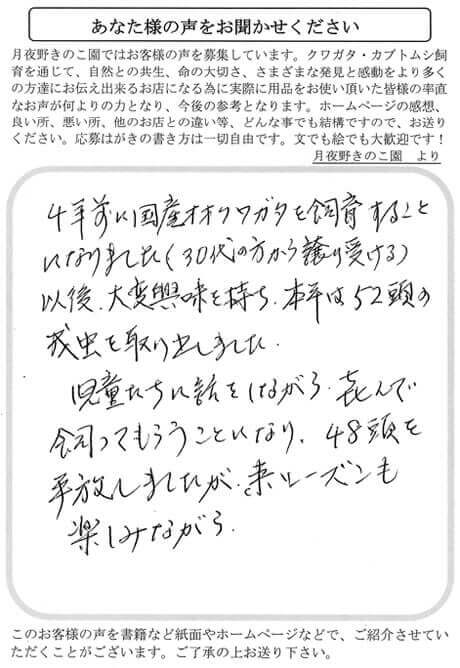 あなた様の声をお聞かせください
月夜野きのこ園ではお客様の声を募集しています。クワガタ・カブトムシ飼
育を通じて、自然との共生、命の大切さ、さまざまな発見と感動をより多く
の方達にお伝え出来るお店になる為に実際に用品をお使い頂いた皆様の率直
なお声が何よりの力となり、今後の参考となります。ホームページの感想、
良い所、悪い所、他のお店との違い等、どんな事でも結構ですので、お送り
ください。応募はがきの書き方は一切自由です。文でも絵でも大歓迎です！
月夜野きのこ園　より
4年前に国産オオクワガタを飼育すること
になりました（30代の方から譲り受ける）
以後、大変興味を持ち、本年は52頭の
成虫を取り出しました。
児童たちに話をしながら、喜んで
飼ってもらうことになり、48頭を
手放しましたが、来シーズンも
楽しみながら。
このお客様の声を書籍など紙面やホームページなどで、ご紹介させてい
ただくことがございます。ご了承の上お送り下さい。